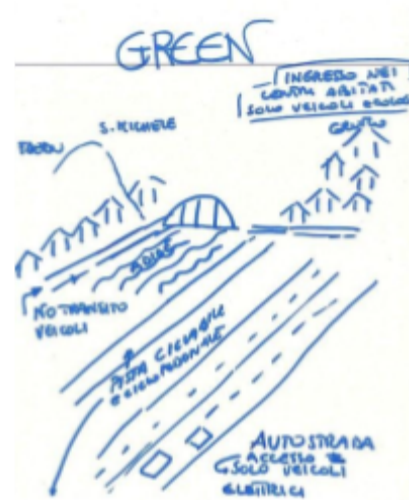 GREEN
INGRESSO NEI
CENTRI ABITATI
SOLO VEICOLI
S. MICHELE
ADIGE
NO TRANSITO
VEICOLI
PISTA CICLABILE
E CICLOPEDONALE
AUTOSTRADA
ACCESSO
SOLO VEICOLI
ELETTRICI